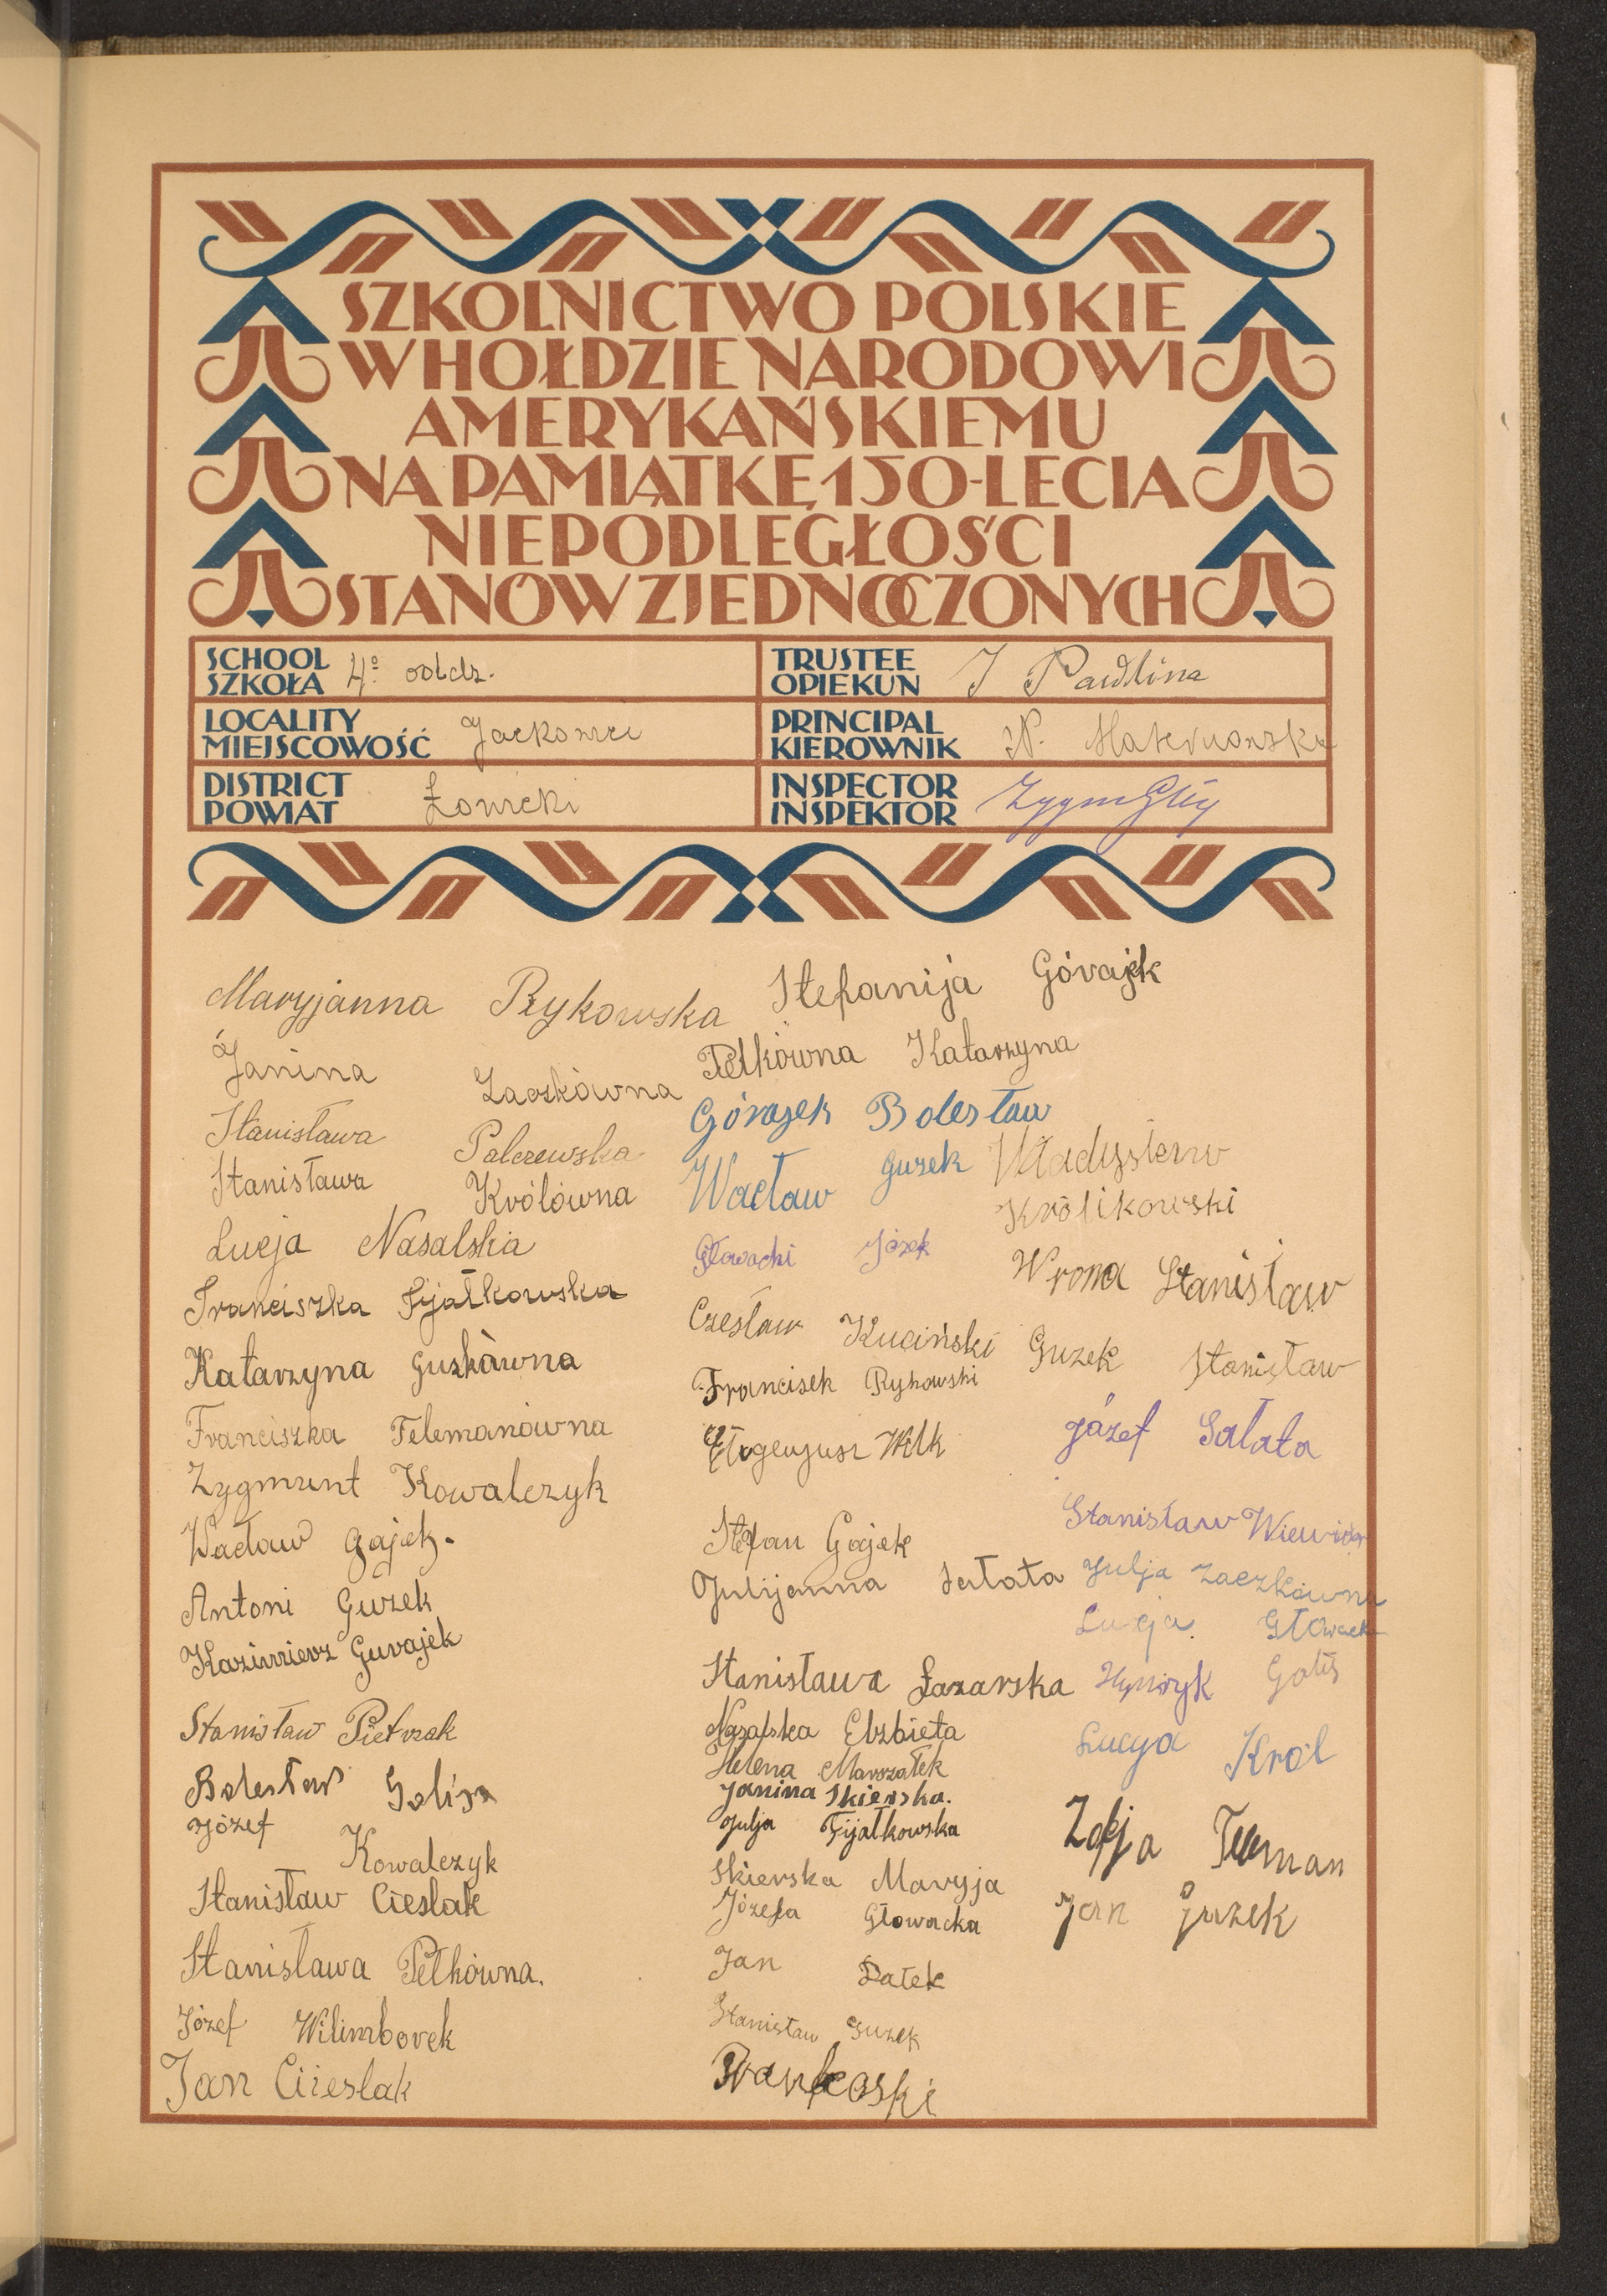 SZKOLNICTWO POLSKIE
W HOŁDZIE NARODOWI
AMERYKAŃSKIEMU
NA PAMIĄTKĘ 150-LECIA
NIEPODLEGŁOŚCI
STANÓW ZJEDNOCZONYCH
SCHOOL
SZKOŁA 4º oddz.
TRUSTEE
OPIEKUN J Pawlina
LOCALITY
MIEJSCOWOŚĆ Jackowice
PRINCIPAL
KIEROWNIK
DISTRICT
POWIAT Łowicki
INSPECTOR
INSPEKTOR
Maryjanna Rykowska
Janina Zaczkówna
Stanisława Palczewska
Stanisława Królówna
Łucja Nasalska
Franciszka Fijałkowska
Katarzyna Guzkówna
Franciszka Telemanówna
Zygmunt Kowalczyk
Wacław Gajek.
Antoni Guzek
Kazimierz Gurajek
Stanisław Pietrzak
Bolesław
Józef Kowalczyk
Stanisław Cieslak
Stanisława Pełkówna.
Józef Wilimborek
Jan Cieslak
Stefanija Górajek
Pełkówna Katarzyna
Górajek Bolesław
Wacław Guzek
Głowacki Józek
Czesław Kuciński
Francisek Rykowski
Wilk
Stefan Gajek
Julijanna Sałata
Stanisława Łazarska
Nasalska Elzbieta
Helena Marszałek
Janina Skierska.
Julja Fijałkowska
Skierska Maryja
Józefa Głowacka
Jan Sałek
Stanisław Guzek
Władysław
Królikowski
Wrona Stanisław
Guzek Stanisław
Józef Sałata
Stanisław Wiewiór
Julja Zaczkówna
Łucja.
Łucya Król
Zofja Teleman
Jan Guzek